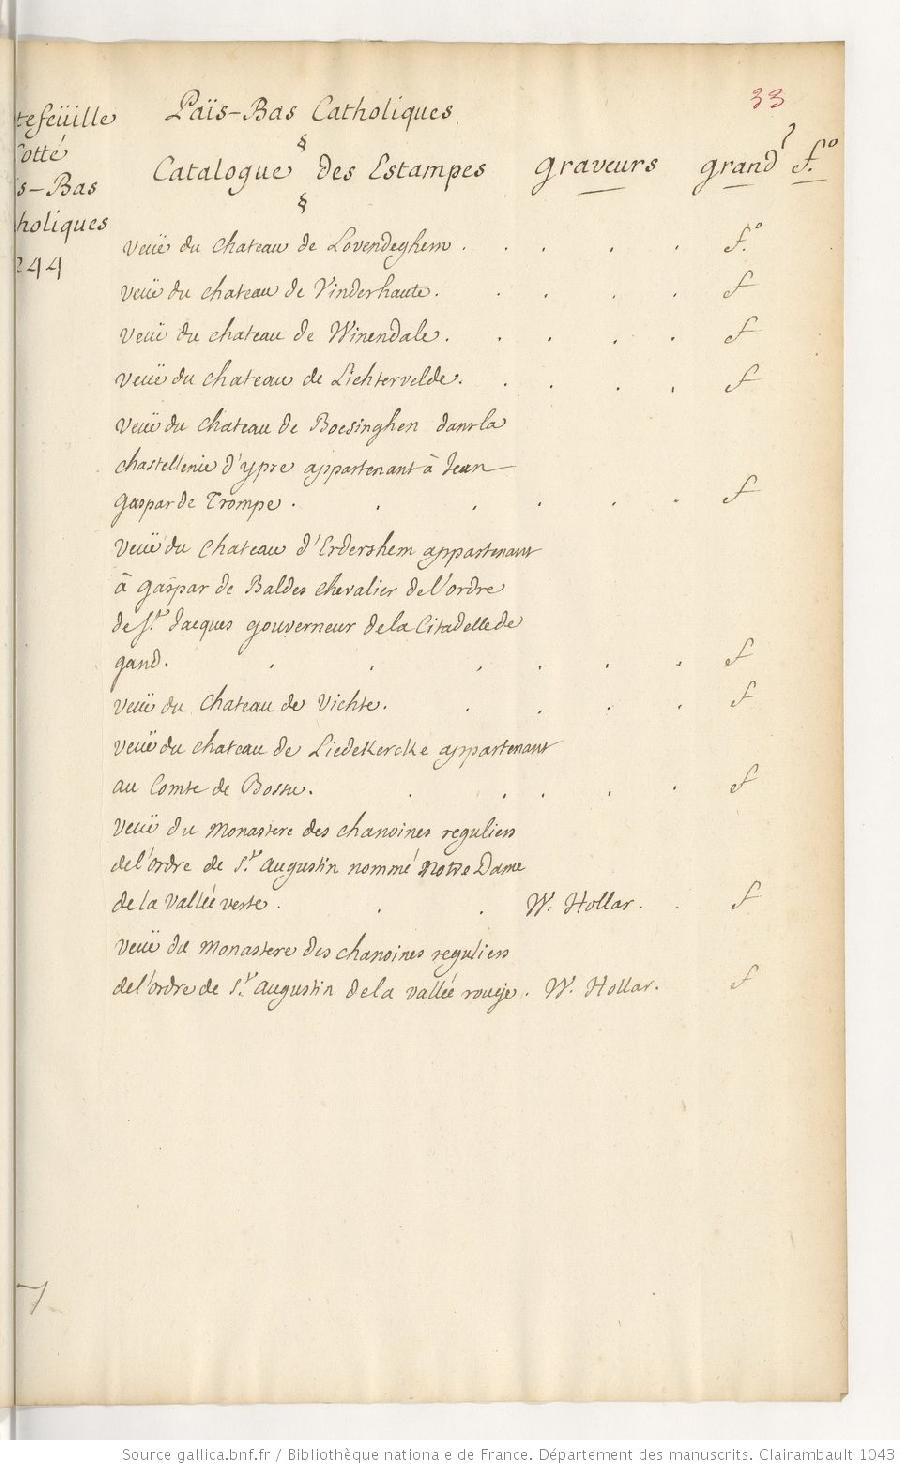 33
tefeüille
Cotté
is-Bas
tholiques
244
Païs-Bas Catholiques
§
Catalogue des Estampes graveurs grand f.°
§
veüe du chateau de Lovendeghem . . . . . f.°
veüe du chateau de Vinderhaute . . . . . f
veüe du chateau de Winendale . . . . . f
veüe du chateau de Lichtervelde . . . . . f
veüe du chateau de Boesinghen dans la
chastellenie d'ypre appartenant à Jean
Gaspar de Trompe . . . . . . f
veüe du chateau d'Erdershem appartenant
à gaspar de Baldes chevalier de l'ordre
de St. Jacques gouverneur de la Citadelle de
gand . . . . . . . f
veüe du chateau de Vichte . . . . . f
veüe du chateau de Liedekercke appartenant
au Comte de Bossu . . . . . . f
veüe du monastere des chanoines reguliers
de l'ordre de St. augustin nommé notre Dame
de la vallée verte . . . W. Hollar . . f
veüe du monastere des chanoines reguliers
de l'ordre de St. augustin de la vallée rouge . W. Hollar . f
Source gallica.bnf.fr / Bibliothèque nationale de France. Département des manuscrits. Clairambault 1043